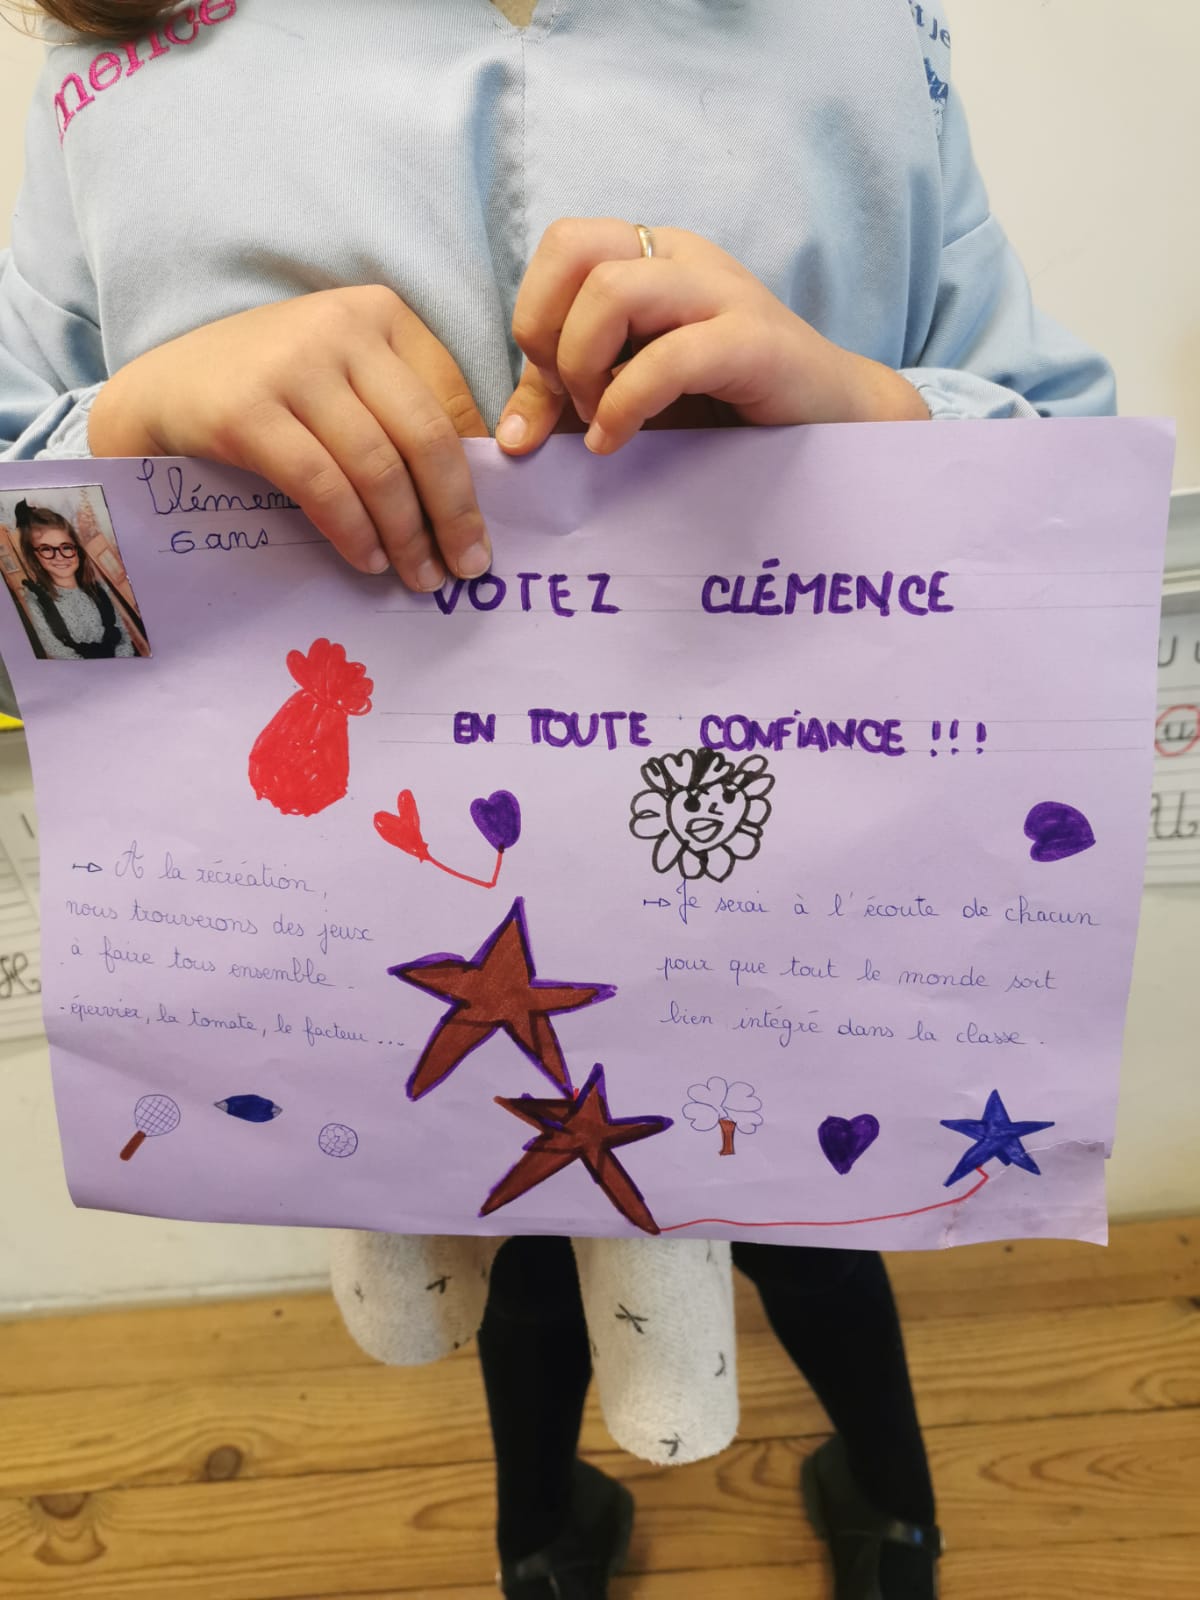 mence
t je
Clémen
6 ans
VOTEZ CLÉMENCE
EN TOUTE CONFIANCE !!!
A la récréation,
nous trouverons des jeux
à faire tous ensemble.
- épervier, la tomate, le facteur...
Je serai à l'écoute de chacun
pour que tout le monde soit
bien intégré dans la classe.
U u